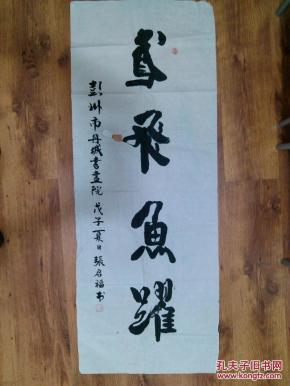 鳶飛魚躍
彭州市丹城書畫院 戊子夏日 張啟福书
孔夫子旧书网